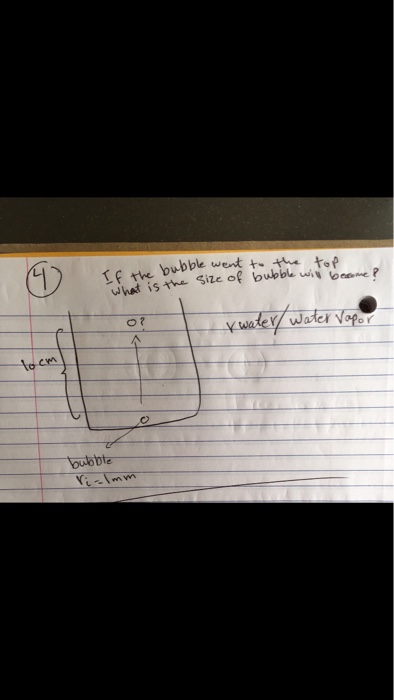 4
If the bubble went to the top
what is the size of bubble will become?
o?
γwater/water vapor
10cm
bubble
ri=1mm